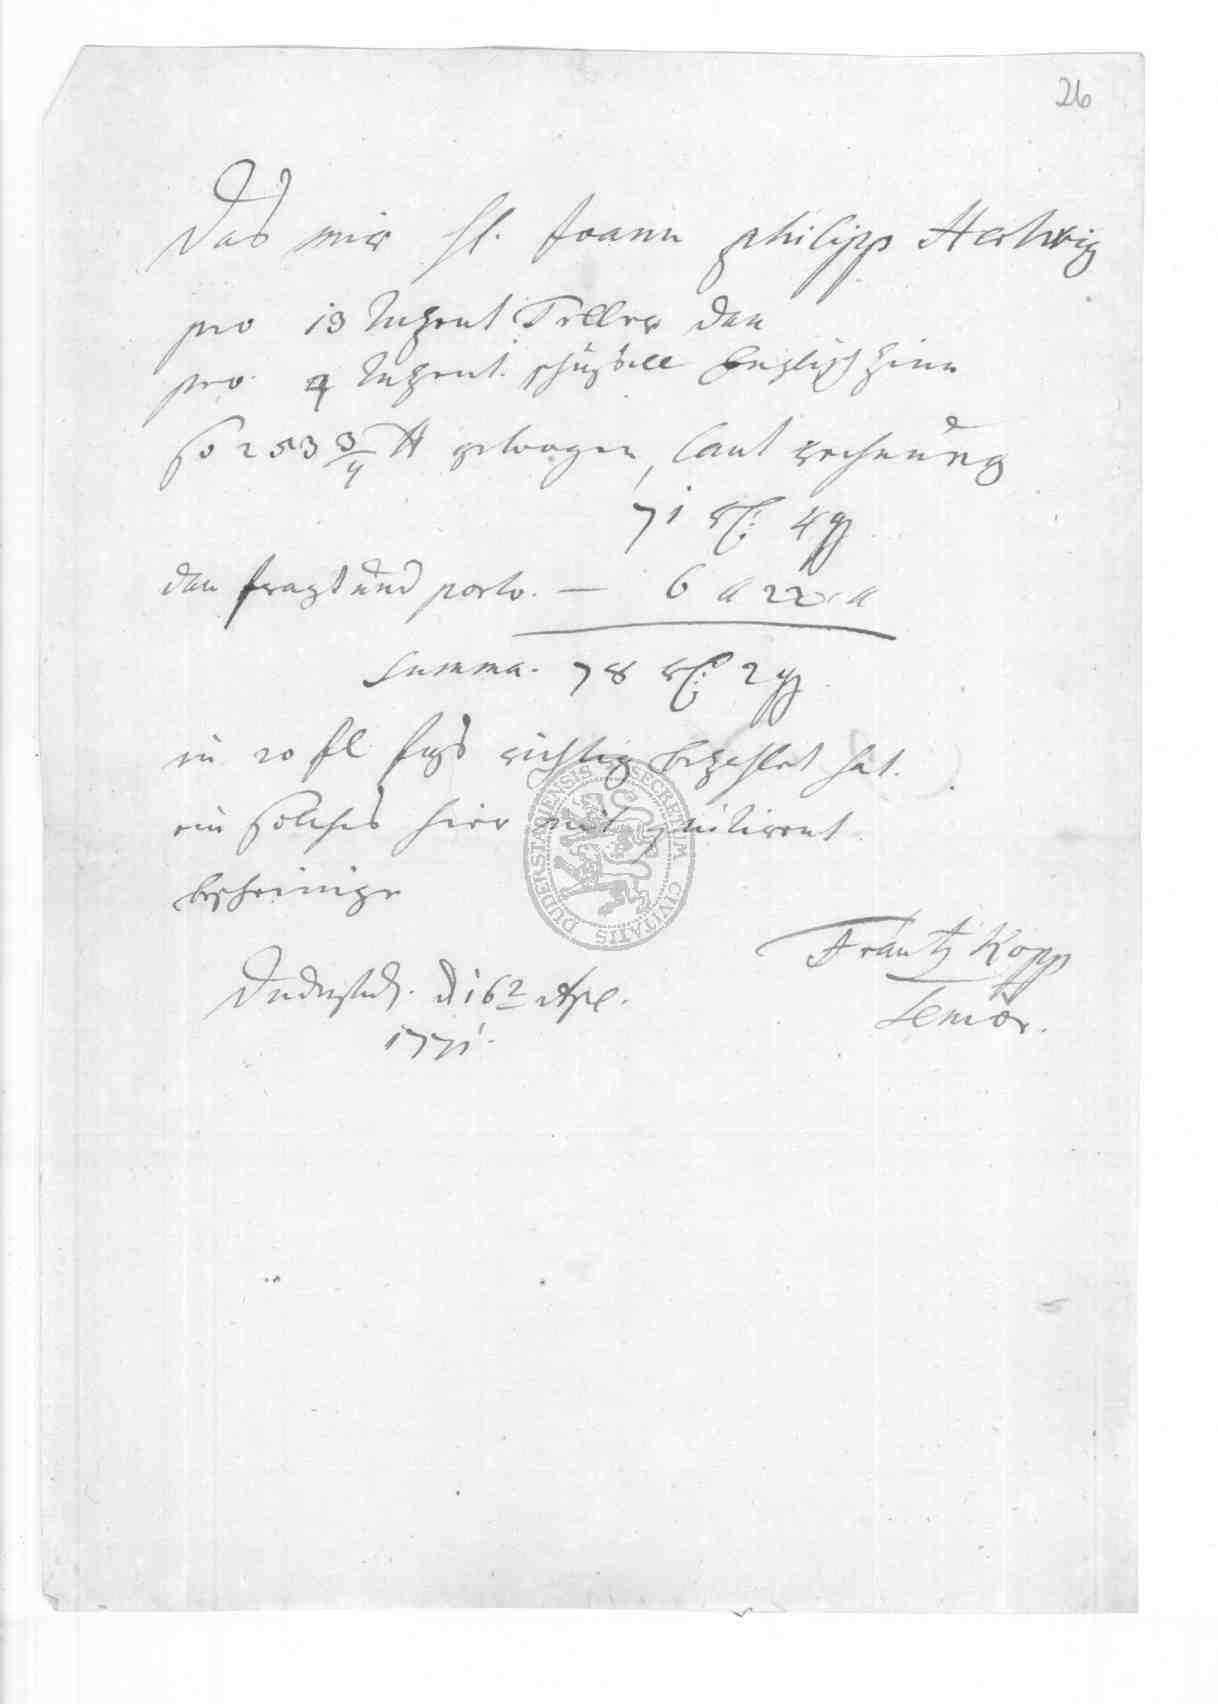 26
Das mir H. Joann philipp Hertwig
pro 13 Tuzent Teller dan
pro 4 Tuzent schüssell Englisch Zinn
so 253 3/4 ℔ gewogen, laut rechnung
71 rth: 4 gg
dan fragt und porto. — 6 " 22 "
Summa. 78 rth: 2 gg
in 20 fl fuss richtig bezahlet hat.
ein solches hier mit quitirent
bescheinige
Frantz Kopp
Senior.
Duderstadt. d 16 Apl.
1771.
SECRETUM CIVITATIS DUDERSTADIENSIS